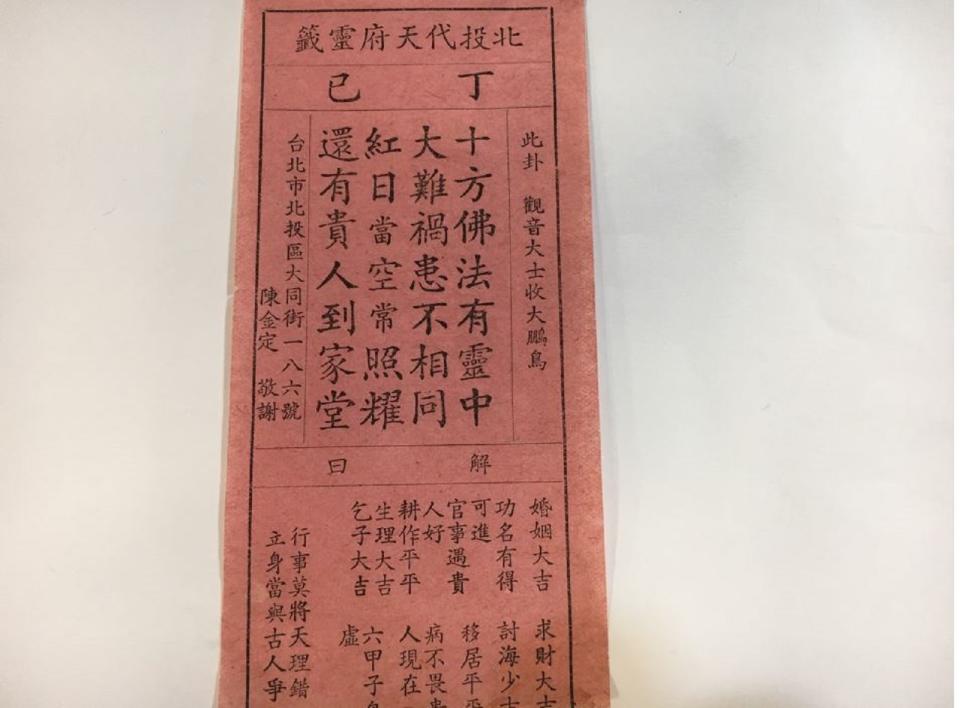 北投代天府靈籤
丁已
此卦 觀音大士收大鵬鳥
十方佛法有靈中
大難禍患不相同
紅日當空常照耀
還有貴人到家堂
台北市北投區大同街一八六號
陳金定 敬謝
解曰
婚姻大吉
功名有得
可進
官事遇貴
人好
耕作平平
生理大吉
乞子大吉
求財大吉
討海少
移居平平
病不畏
人現在
六甲子
虛
行事莫將天理錯
立身當與古人爭